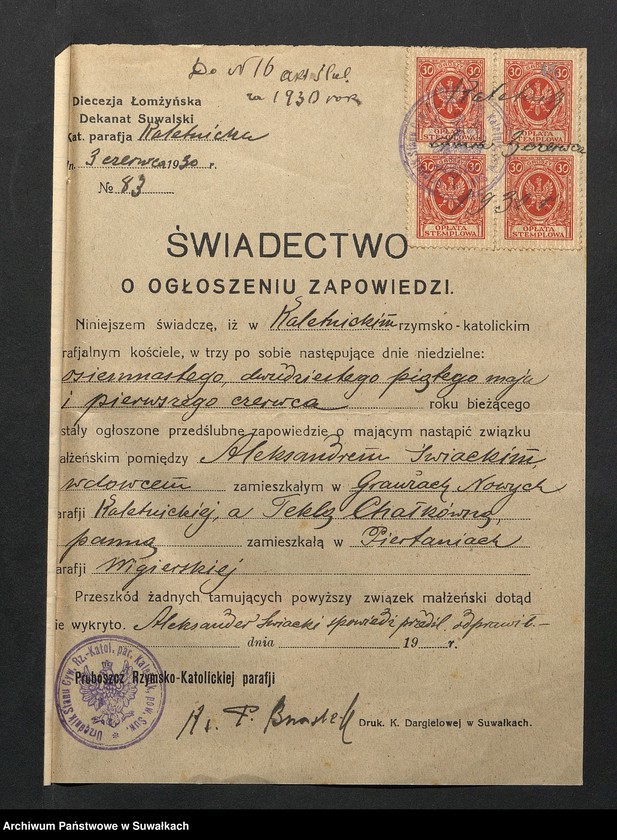 Do N 16 akt ślub.
za 1930 rok
Diecezja Łomżyńska
Dekanat Suwalski
Kat. parafja Kaletnicka
dn. 3 czerwca 1930 r.
№ 83
30 30
OPŁATA STEMPLOWA
30 30
OPŁATA STEMPLOWA
30 30
OPŁATA STEMPLOWA
30 30
OPŁATA STEMPLOWA
Kaletnik
3 czerwca
1930 r
ŚWIADECTWO
O OGŁOSZENIU ZAPOWIEDZI.
Niniejszem świadczę, iż w Kaletnickim rzymsko-katolickim
rafjalnym kościele, w trzy po sobie następujące dnie niedzielne:
osiemnastego, dwudziestego piątego maja
i pierwszego czerwca roku bieżącego
stały ogłoszone przedślubne zapowiedzie o mającym nastąpić związku
ałżeńskim pomiędzy Aleksandrem Iwackim,
wdowcem zamieszkałym w Nowych
arafji Kaletnickiej, a Teklą Chatkówną,
panną zamieszkałą w Piertaniach
arafji Wigierskiej
Przeszkód żadnych tamujących powyższy związek małżeński dotąd
ie wykryto. Aleksander Iwacki spowiedź przedśl. odprawił.–
dnia 19 r.
Proboszcz Rzymsko-Katolickiej parafji
Urzędnik Stanu Cyw. Rz.-Katol. par. Kaletnik, pow. Suw.
Ks. P.
Druk. K. Dargielowej w Suwałkach.
Archiwum Państwowe w Suwałkach